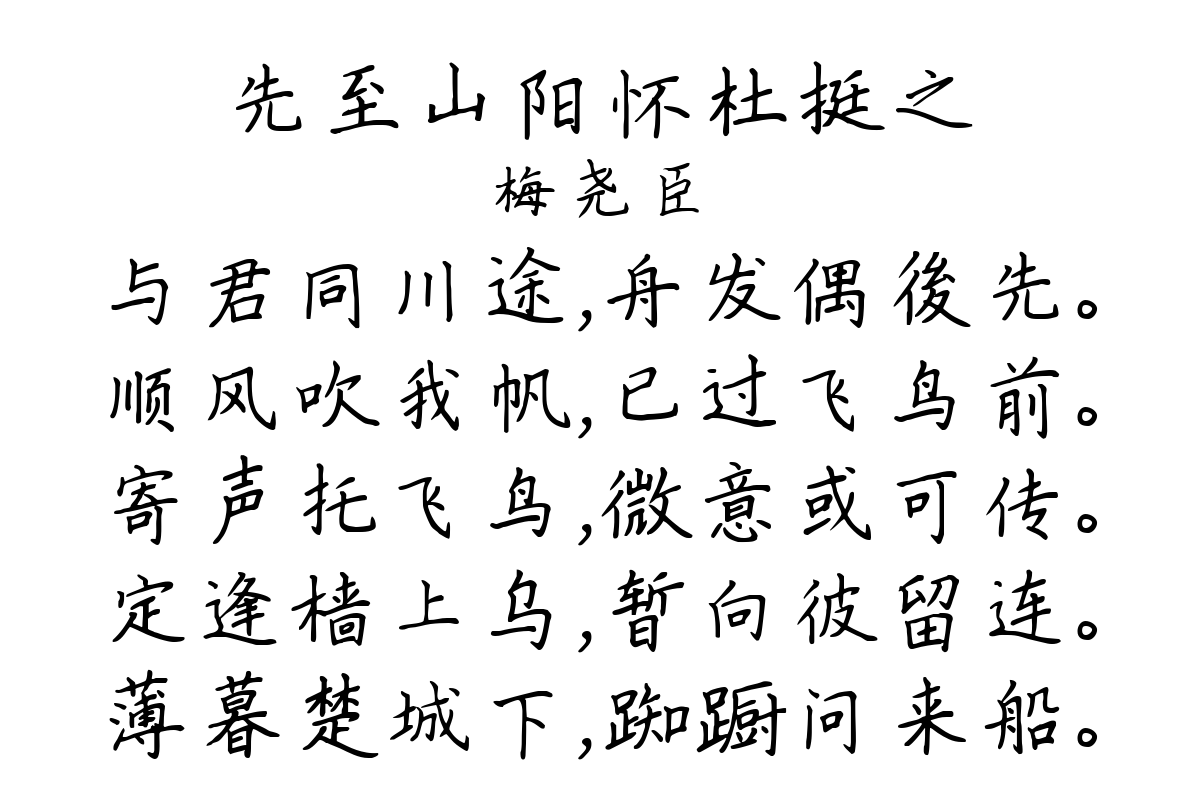 先至山阳怀杜挺之
梅尧臣
与君同川途,舟发偶後先。
顺风吹我帆,已过飞鸟前。
寄声托飞鸟,微意或可传。
定逢樯上乌,暂向彼留连。
薄暮楚城下,踟蹰问来船。